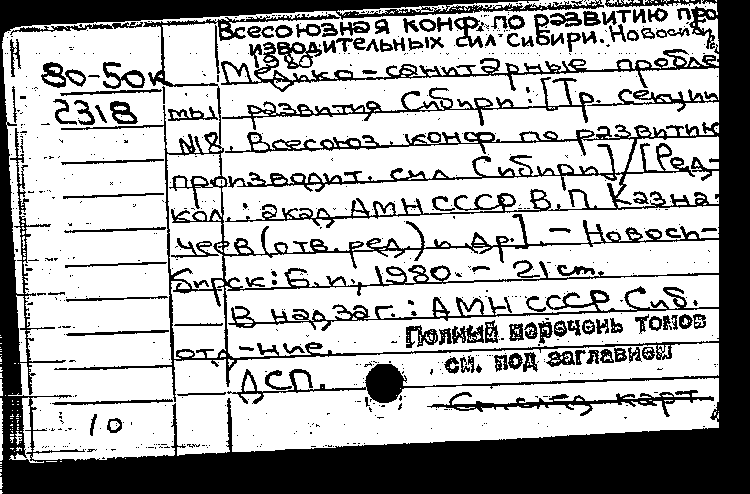 Всесоюзная конф. по развитию про
изводительных сил Сибири. Новосиб
1980
80-50к
2318
Медико-санитарные пробле
мы развития Сибири : [Тр. секции
N18. Всесоюз. конф. по развитию
производит. сил Сибири] / [Ред-
кол. : акад. АМН СССР В. П. Казна-
чеев (отв. ред.) и др.]. - Новоси-
бирск : Б. и., 1980. - 21 см.
В надзаг. : АМН СССР. Сиб.
отд-ние.
Полный перечень томов
см. под заглавием
ДСП.
См. след. карт.
10